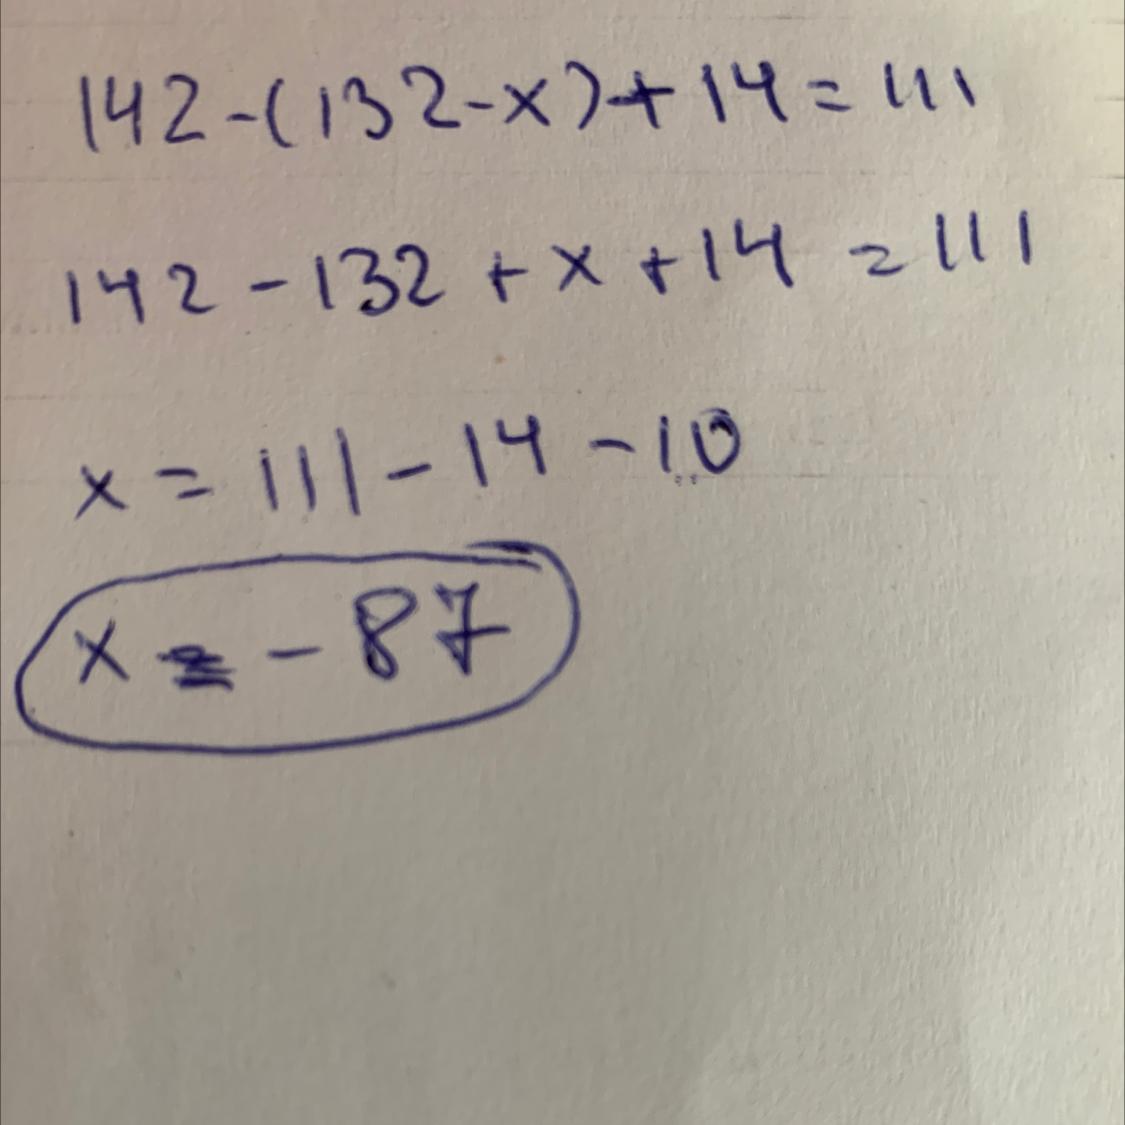 142-(132-x)+14=111
142-132+x+14=111
x=111-14-10
x=-87